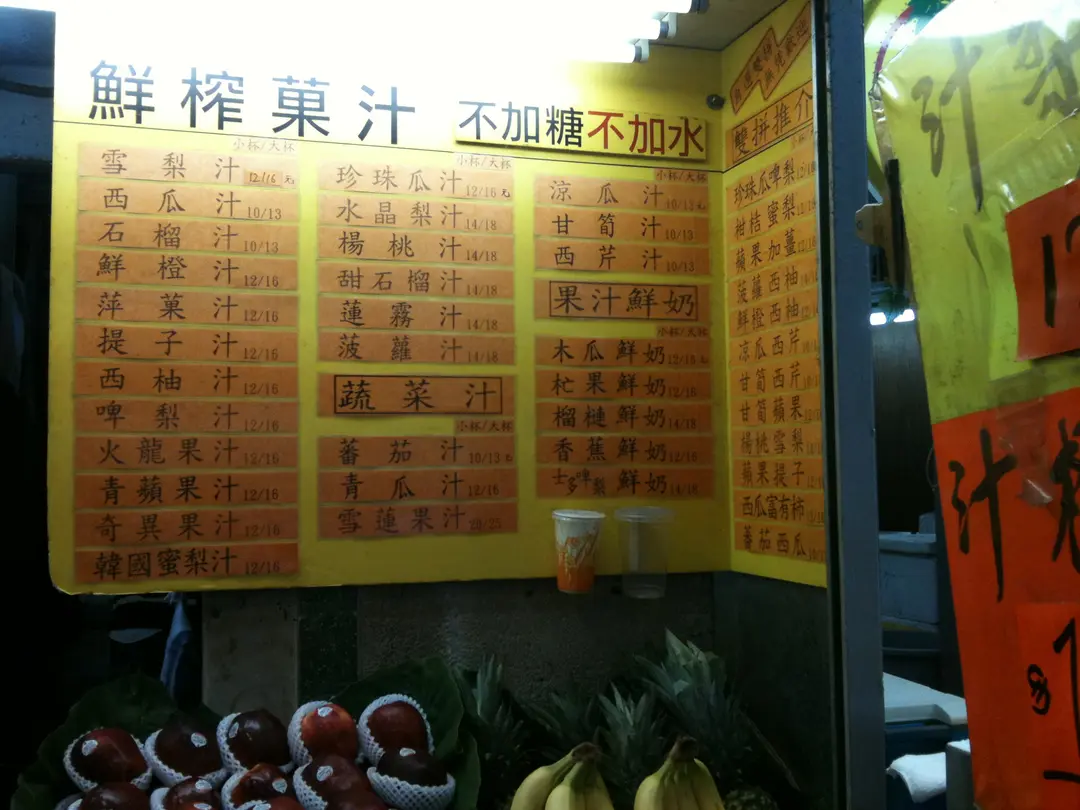 鮮榨菓汁
不加糖不加水
小杯/大杯
雪梨汁 12/16元
西瓜汁 10/13
石榴汁 10/13
鮮橙汁 12/16
萍菓汁 12/16
提子汁 12/16
西柚汁 12/16
啤梨汁 12/16
火龍果汁 12/16
青蘋果汁 12/16
奇異果汁 12/16
韓國蜜梨汁 12/16
小杯/大杯
珍珠瓜汁 12/16元
水晶梨汁 14/18
楊桃汁 14/18
甜石榴汁 14/18
蓮霧汁 14/18
菠蘿汁 14/18
蔬菜汁
小杯/大杯
蕃茄汁 10/13
青瓜汁 12/16
雪蓮果汁 20/25
小杯/大杯
涼瓜汁 10/13
甘筍汁 10/13
西芹汁 10/13
果汁鮮奶
小杯/大杯
木瓜鮮奶 12/16
杧果鮮奶 12/16
榴槤鮮奶 14/18
香蕉鮮奶 12/16
士多啤梨鮮奶 14/16
雙拼推介
珍珠瓜啤梨
柑桔蜜梨
蘋果加薑
菠蘿西柚
鮮橙西柚
涼瓜西芹
甘筍西芹
甘筍蘋果
楊桃雪梨
蘋果提子
西瓜富有柿
蕃茄西瓜
汁
汁